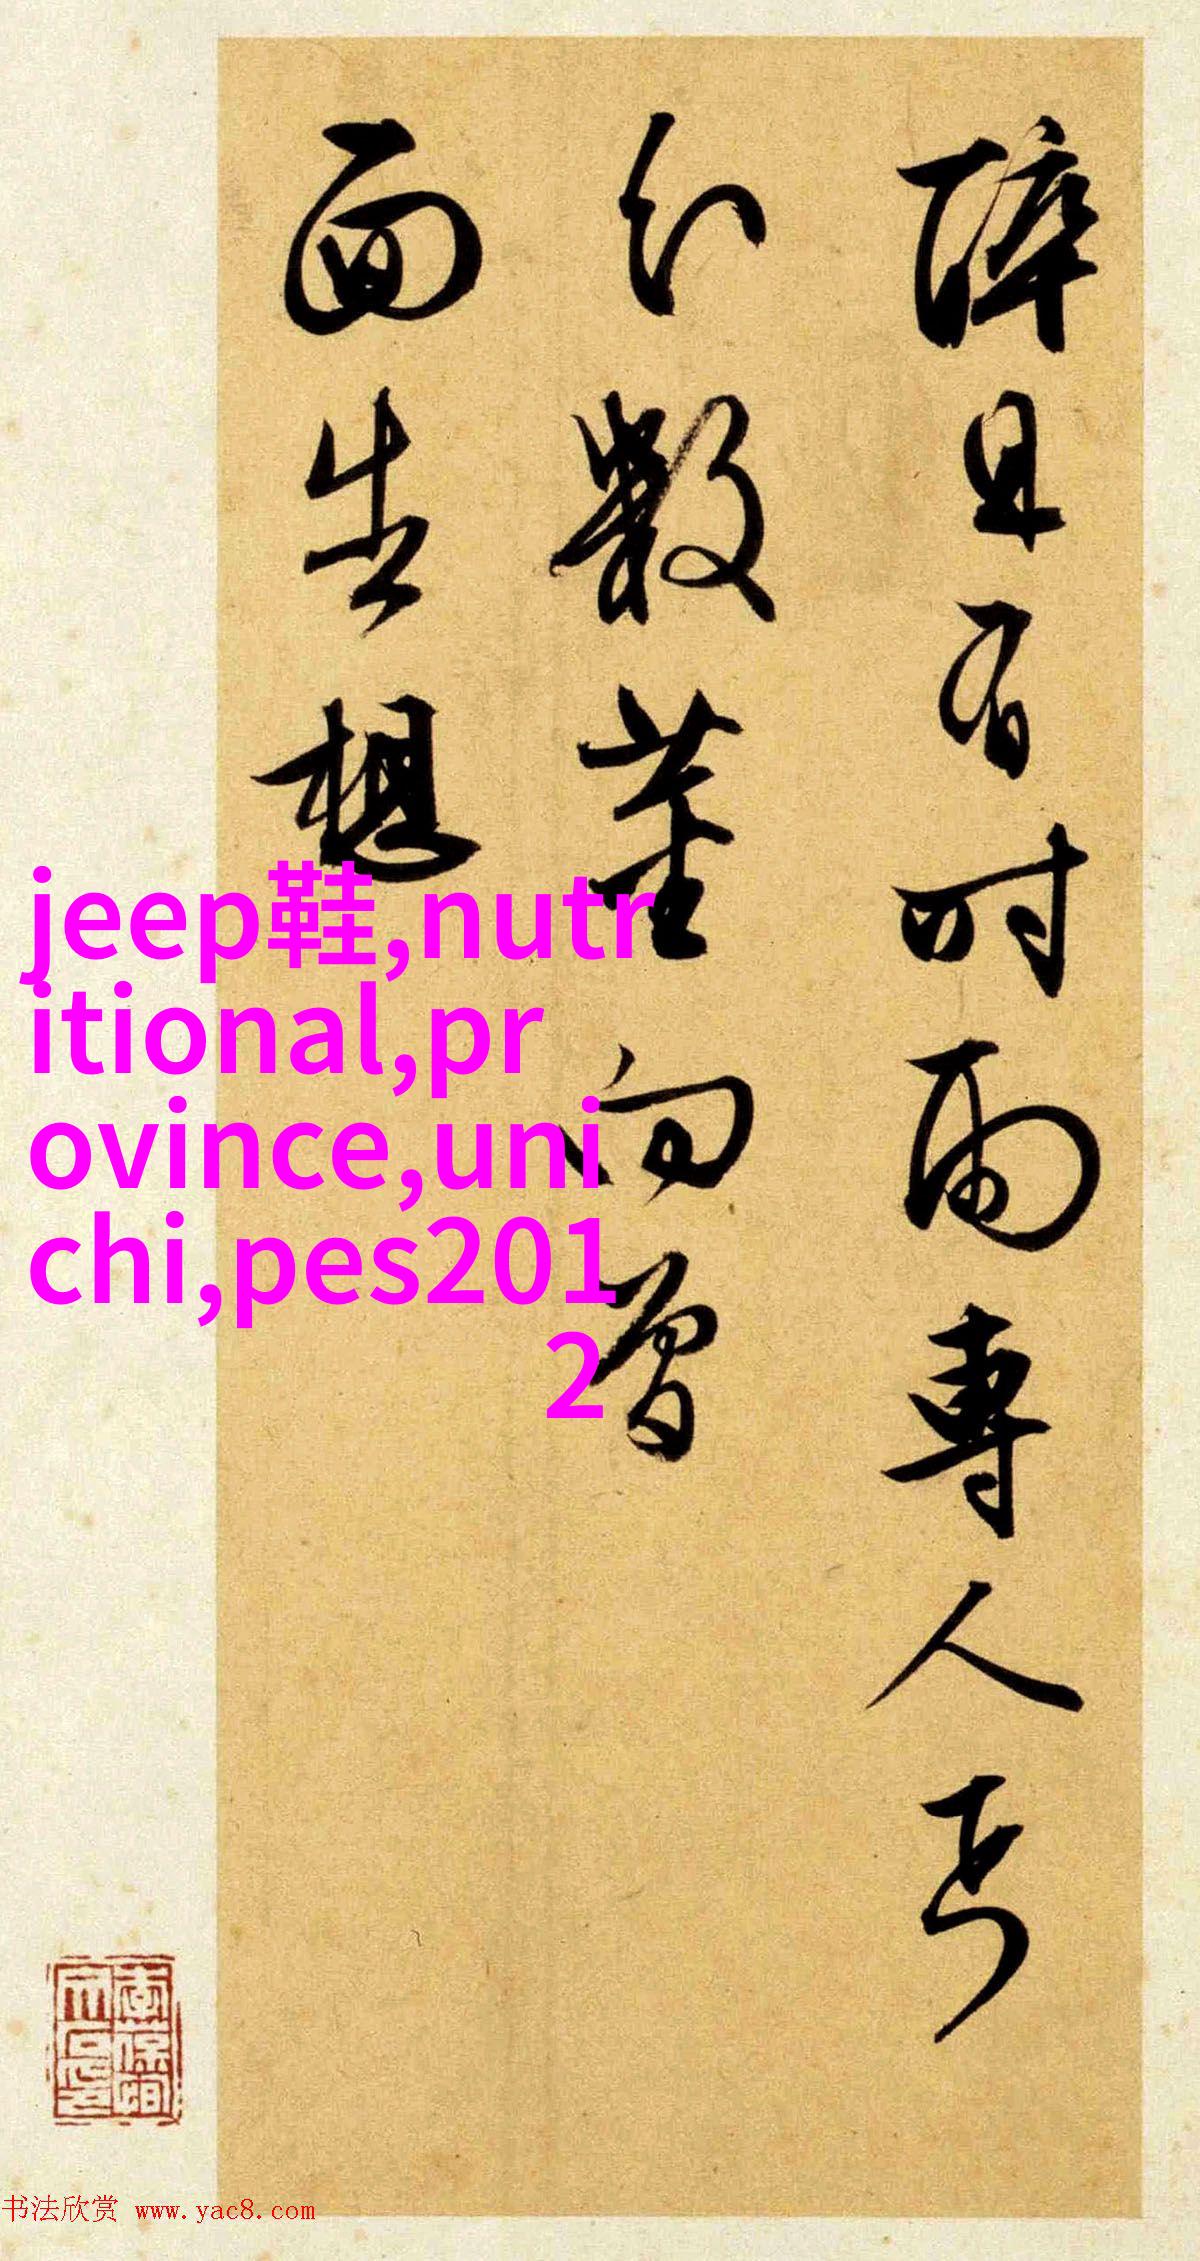 障且有时雨專人
幻數董向曾
面生想
jeep鞋,nutr
itional,pr
ovince,uni
chi,pes201
2
书法欣赏 www.yac8.com